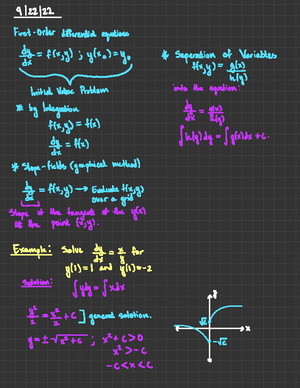 9/22/22
First-Order differential equations
dy/dx = f(x,y) ; y(x₀)=y₀
Initial Value Problem
* by Integration
f(x,y) = f(x)
dy/dx = f(x)
* Slope-fields (graphical method)
dy/dx = f(x,y) → Evaluate f(x,y) over a grid
Slope of the tangent of the y(x)
at the point (x,y).
* Separation of Variables
f(x,y) = g(x)/h(y)
into the equation:
dy/dx = g(x)/h(y)
∫h(y)dy = ∫g(x)dx + c.
Example: Solve dy/dx = x/y for
y(1)=1 and y(1)=-2
Solution: ∫ydy = ∫xdx
y²/2 = x²/2 + c ] general solution.
y = ± √x²+c ; x²+c>0
x² > -c
-c < x < c
y
√c
-√c
x